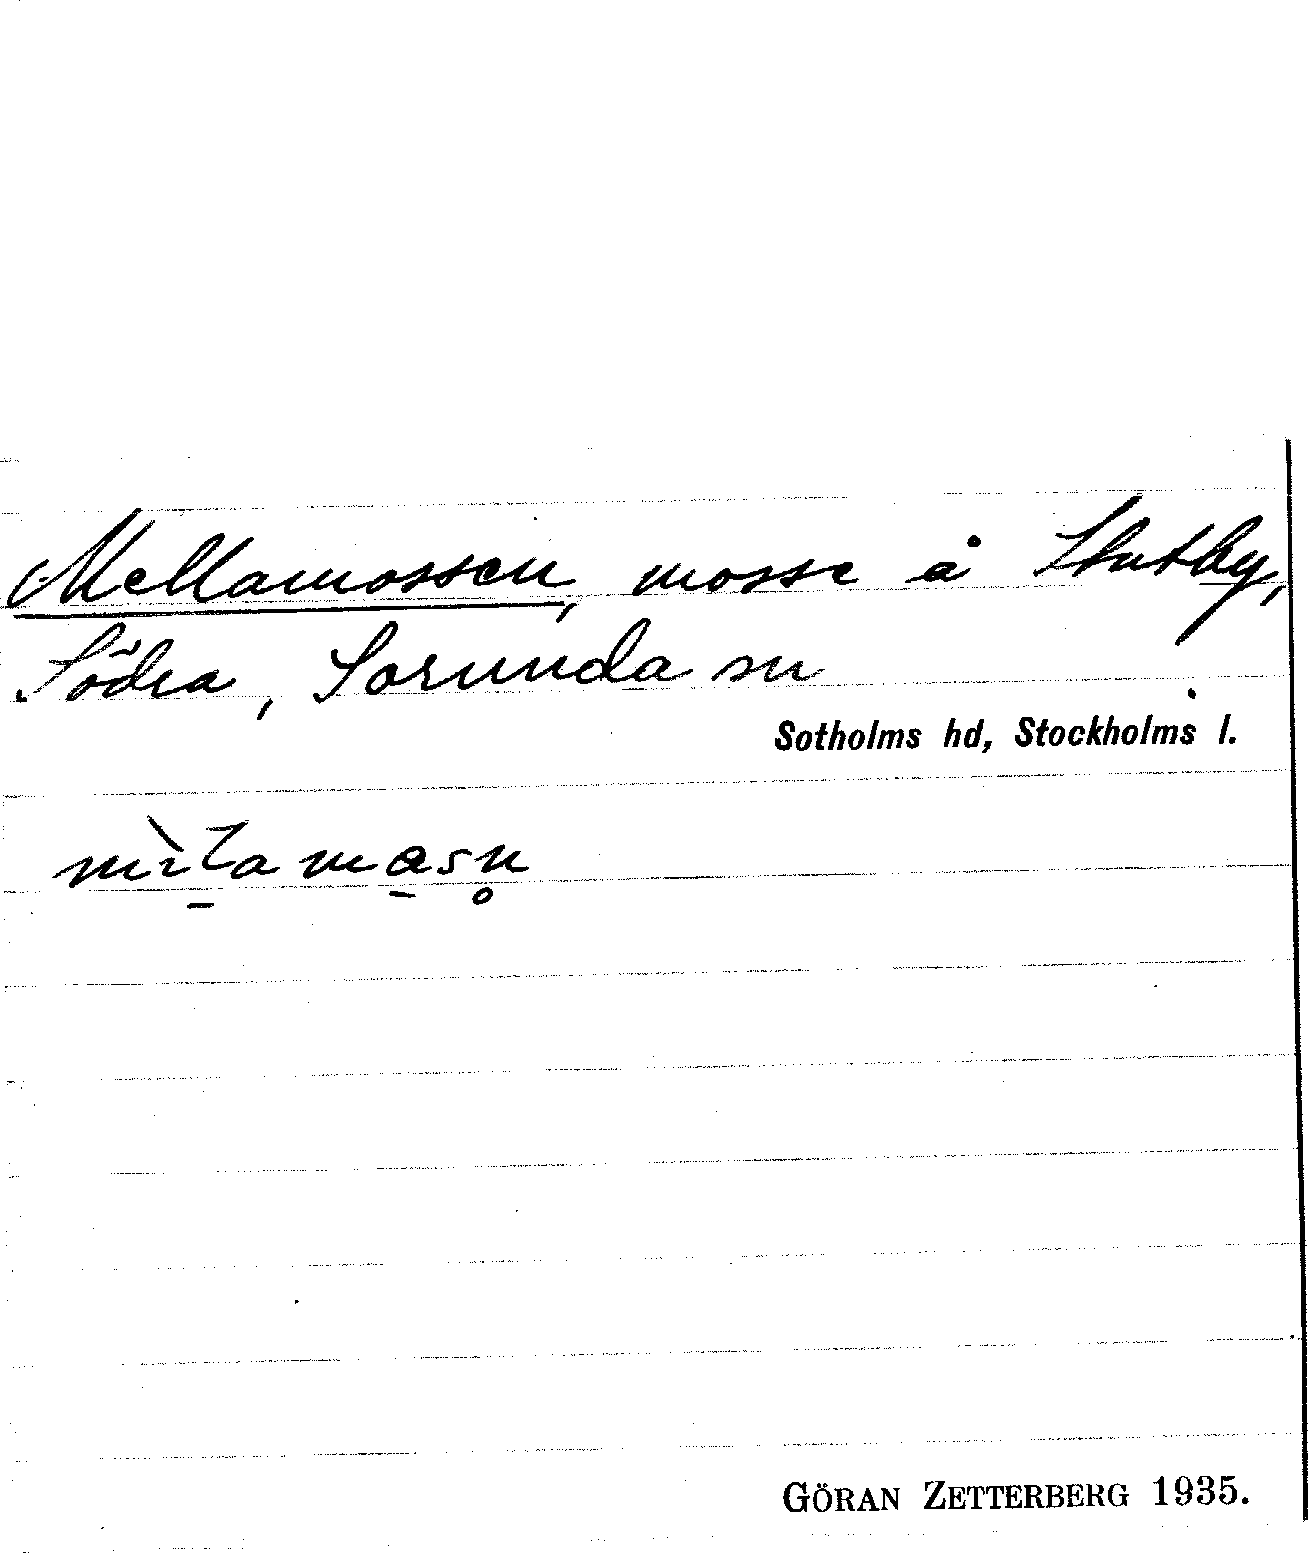 Mellamossen, mosse å Stutby,
Södra, Sorunda sn
Sotholms hd, Stockholms l.
GÖRAN ZETTERBERG 1935.